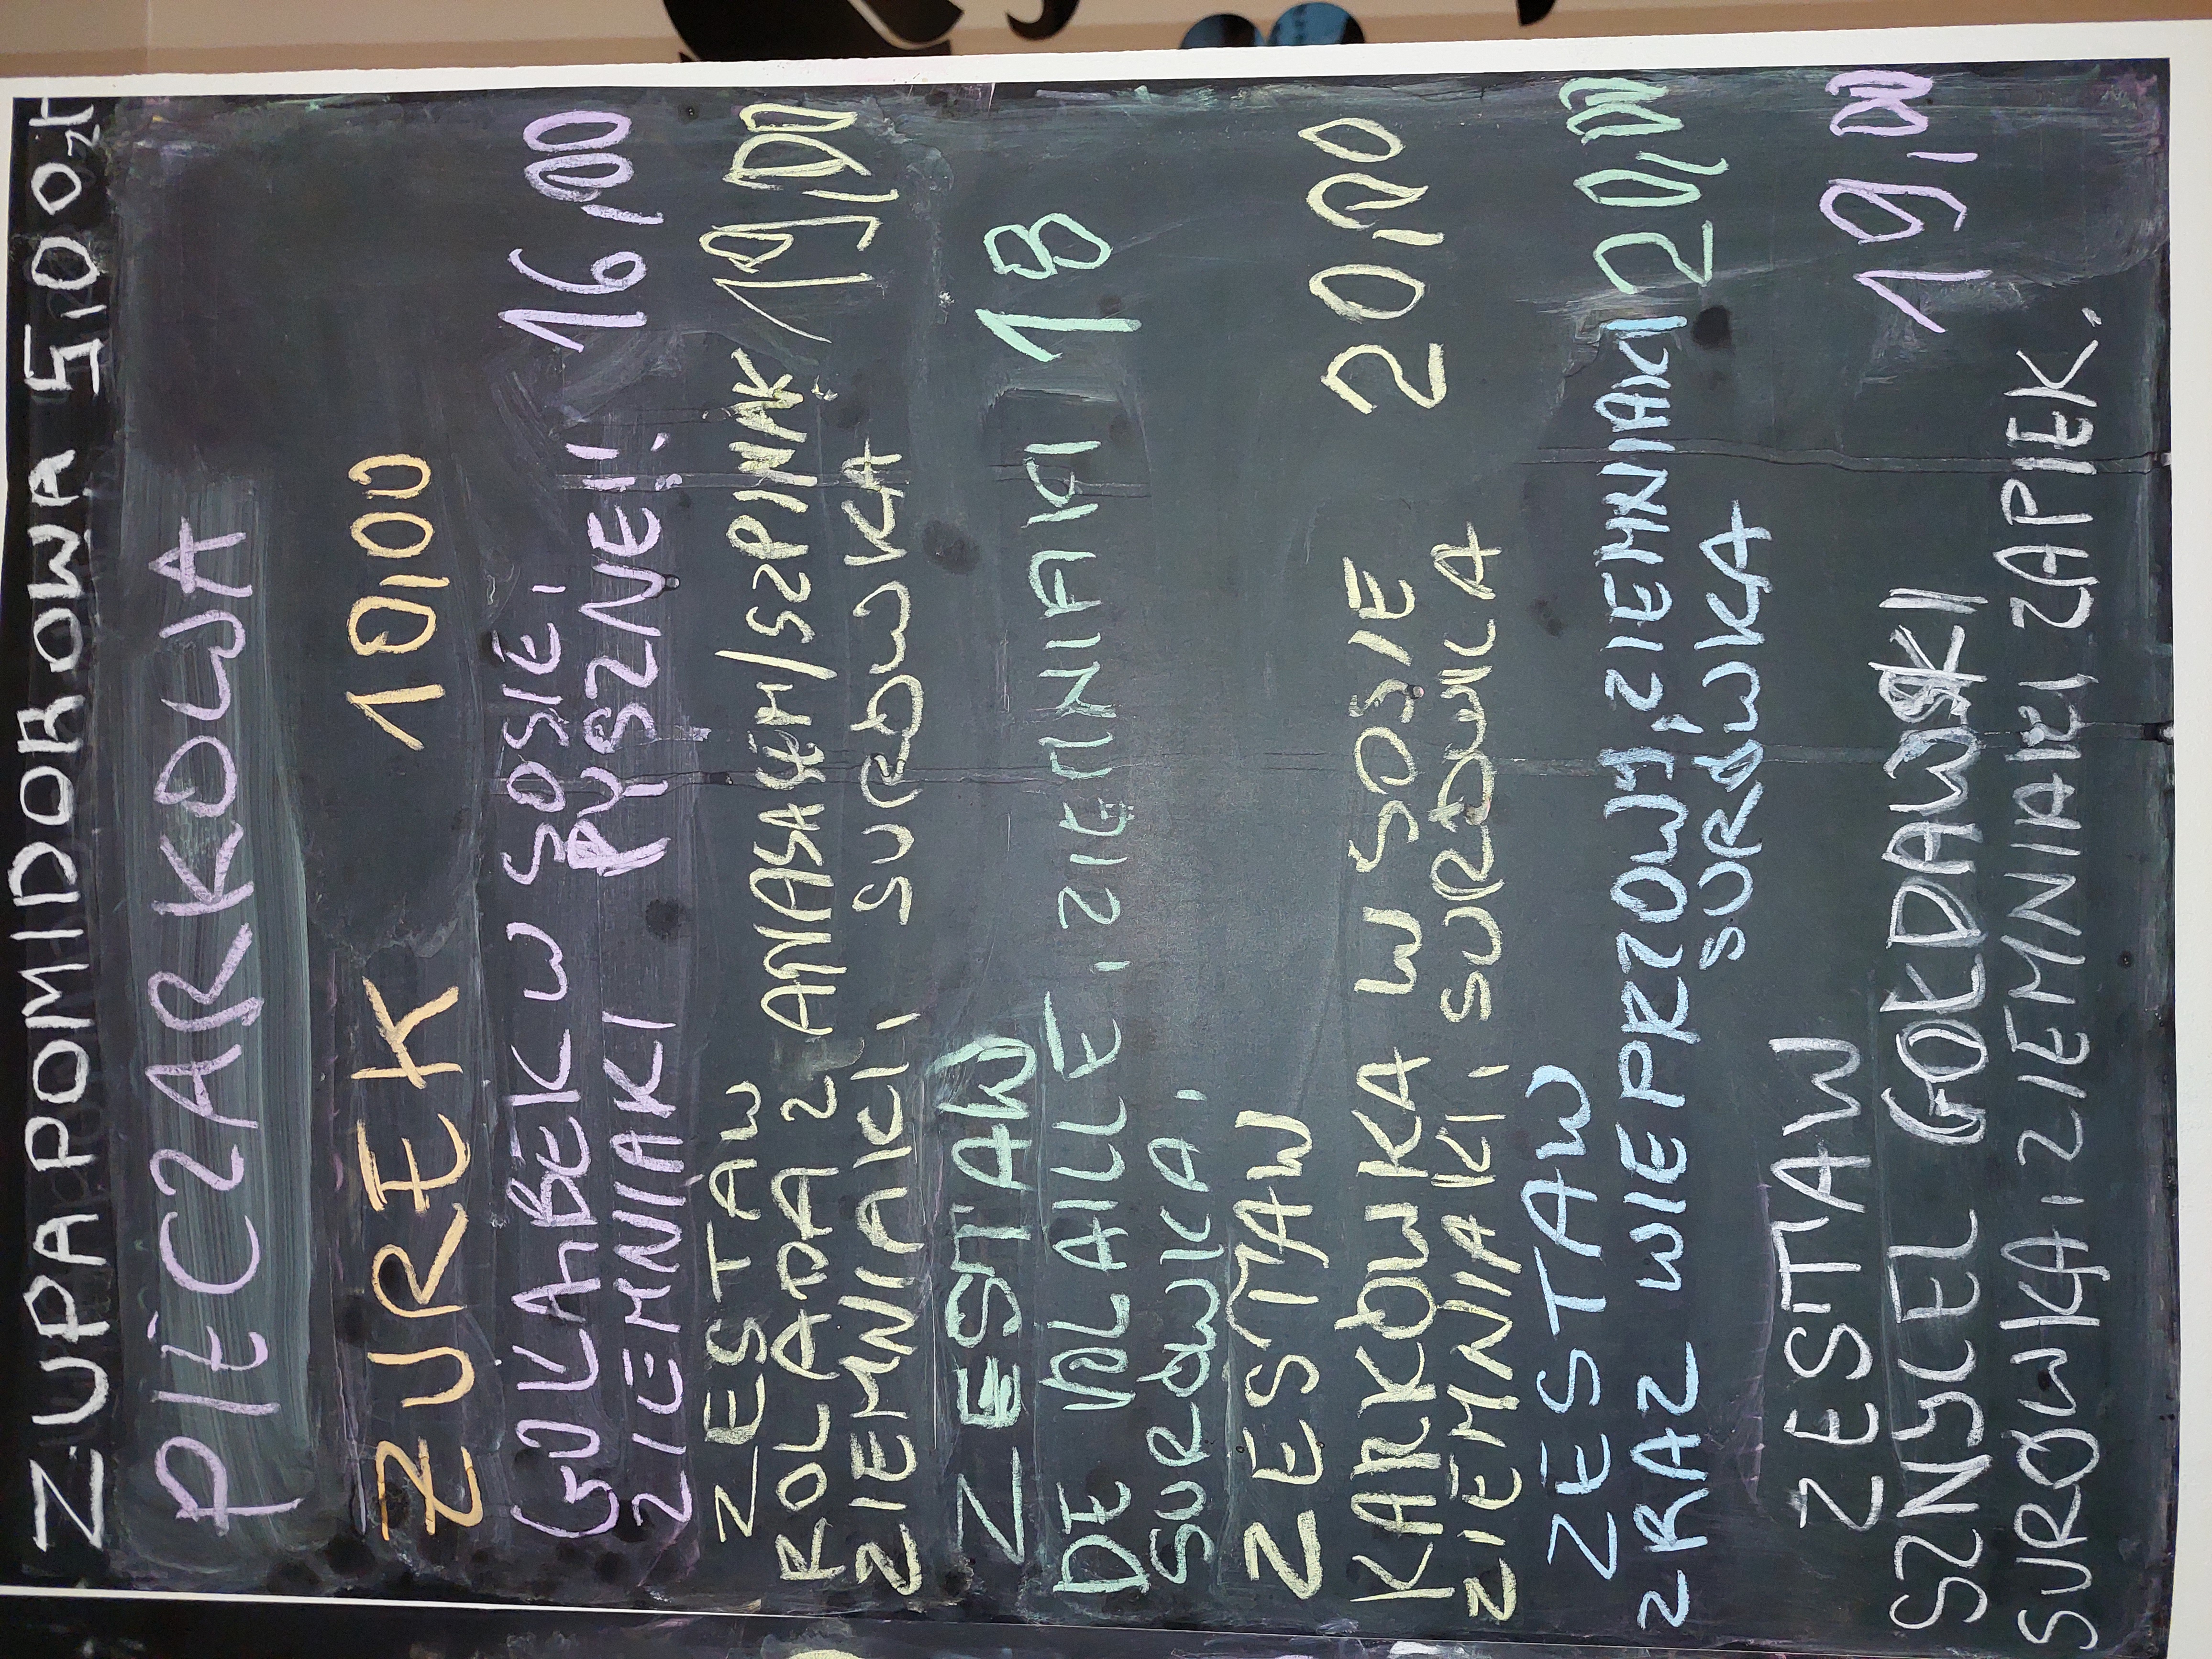 ZUPA POMIDOROWA 5,00 zł
PIECZARKOWA
ŻUREK 10,00
GOŁĄBEK W SOSIE, 16,00
ZIEMNIAKI PYSZNE!!
ZESTAW
ROLADA Z ANANASEM/SZPINAK 19,00
ZIEMNIAKI, SURÓWKA
ZESTAW
DE VOLAILLE, ZIEMNIAKI 18
SURÓWKA,
ZESTAW
KARKÓWKA W SOSIE 20,00
ZIEMNIAKI, SURÓWKA
ZESTAW
ZRAZ WIEPRZOWY, ZIEMNIAKI 20,00
SURÓWKA
ZESTAW
SZNYCEL GOŁDAWSKI 19,00
SURÓWKA, ZIEMNIAKI ZAPIEK.